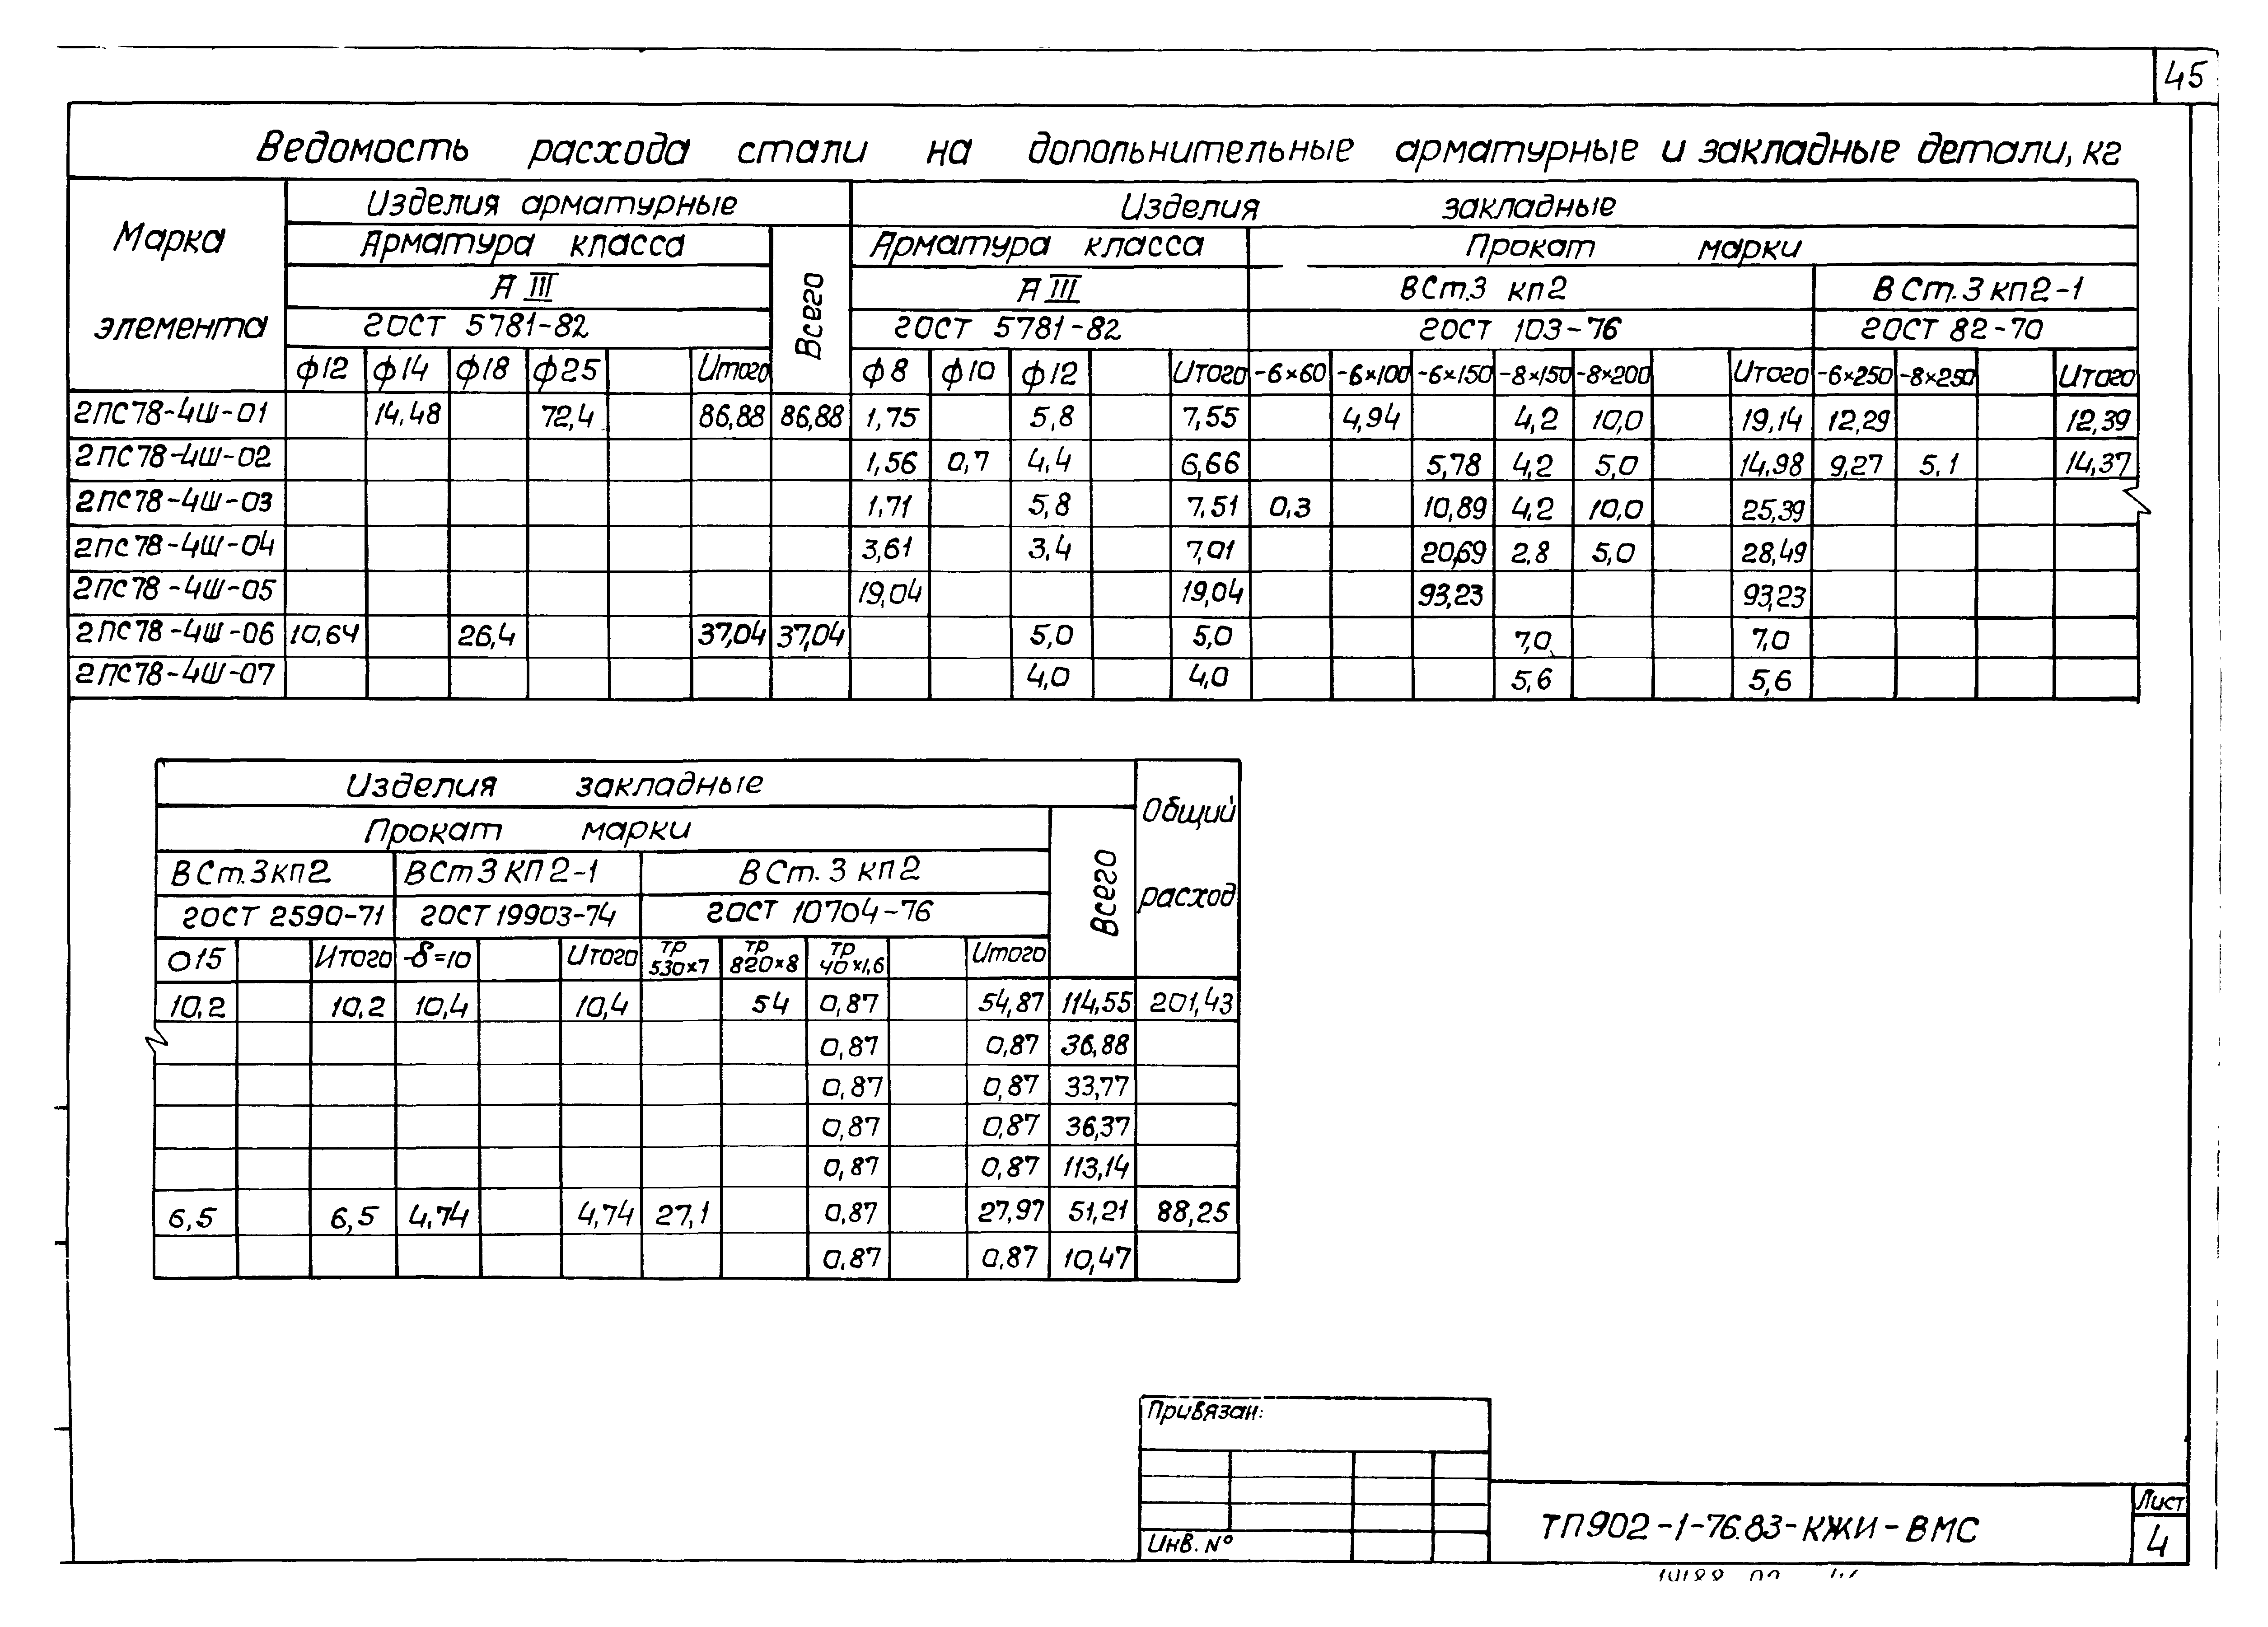 45
Ведомость расхода стали на дополнительные арматурные и закладные детали, кг
Марка элемента
Изделия арматурные
Изделия закладные
Арматура класса
Всего
Арматура класса
Прокат марки
А III
А III
ВСт.3 кп2
ВСт.3кп2-1
ГОСТ 5781-82
ГОСТ 5781-82
ГОСТ 103-76
ГОСТ 82-70
ф12 ф14 ф18 ф25 Итого ф8 ф10 ф12 Итого -6×60 -6×100 -6×150 -8×150 -8×200 Итого -6×250 -8×250 Итого
2ПС78-4Ш-01 14,48 72,4 86,88 86,88 1,75 5,8 7,55 4,94 4,2 10,0 19,14 12,29 12,39
2ПС78-4Ш-02 1,56 0,7 4,4 6,66 5,78 4,2 5,0 14,98 9,27 5,1 14,37
2ПС78-4Ш-03 1,71 5,8 7,51 0,3 10,89 4,2 10,0 25,39
2ПС78-4Ш-04 3,61 3,4 7,01 20,69 2,8 5,0 28,49
2ПС78-4Ш-05 19,04 19,04 93,23 93,23
2ПС78-4Ш-06 10,64 26,4 37,04 37,04 5,0 5,0 7,0 7,0
2ПС78-4Ш-07 4,0 4,0 5,6 5,6
Изделия закладные
Общий расход
Прокат марки
Всего
ВСт.3кп2 ВСт3КП2-1 ВСт.3кп2
ГОСТ 2590-71 ГОСТ 19903-74 ГОСТ 10704-76
О15 Итого -δ=10 Итого тр 530×7 тр 820×8 тр 40×1,6 Итого
10,2 10,2 10,4 10,4 54 0,87 54,87 114,55 201,43
0,87 0,87 36,88
0,87 0,87 33,77
0,87 0,87 36,37
0,87 0,87 113,14
6,5 6,5 4,74 4,74 27,1 0,87 27,97 51,21 88,25
0,87 0,87 10,47
Привязан:
Инв. №
ТП902-1-76.83-КЖИ-ВМС
Лист
4